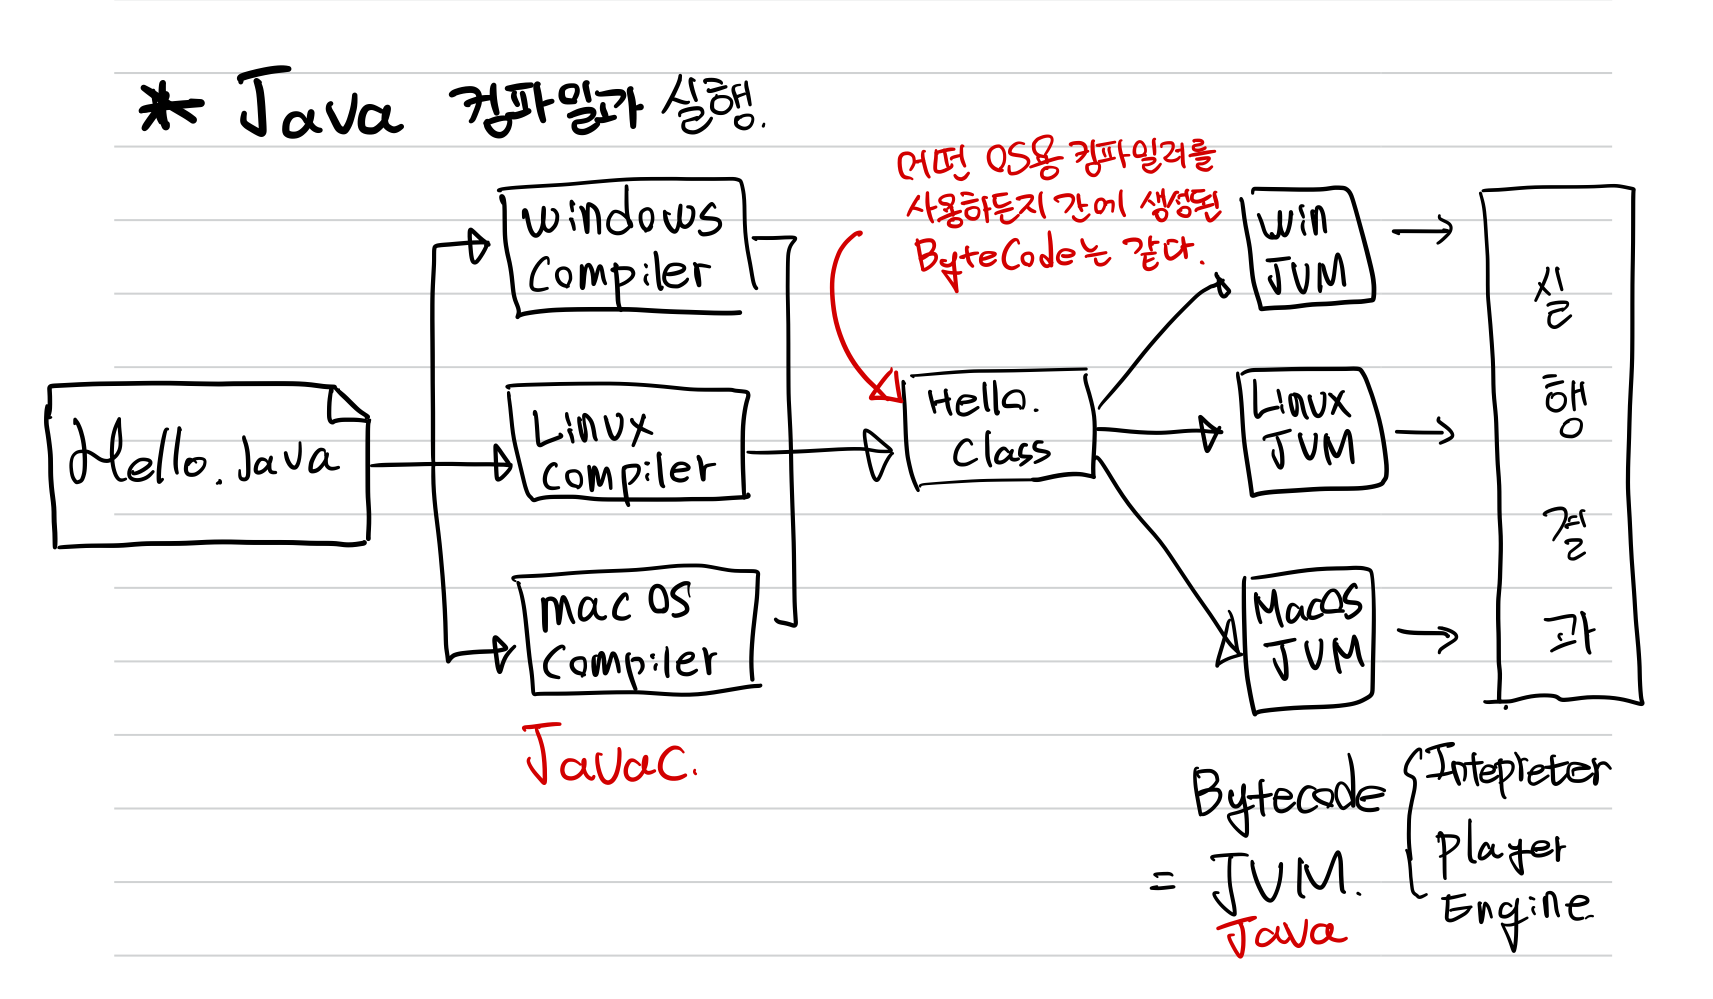 * Java 컴파일과 실행.
어떤 OS용 컴파일러를
사용하든지 간에 생성된
ByteCode는 같다.
Windows
Compiler
Linux
Compiler
mac OS
Compiler
Javac.
Hello.java
Hello.
Class
Win
JVM
Linux
JVM
MacOS
JVM
실
행
결
과
Bytecode
= JVM.
Java
Intepreter
Player
Engine.